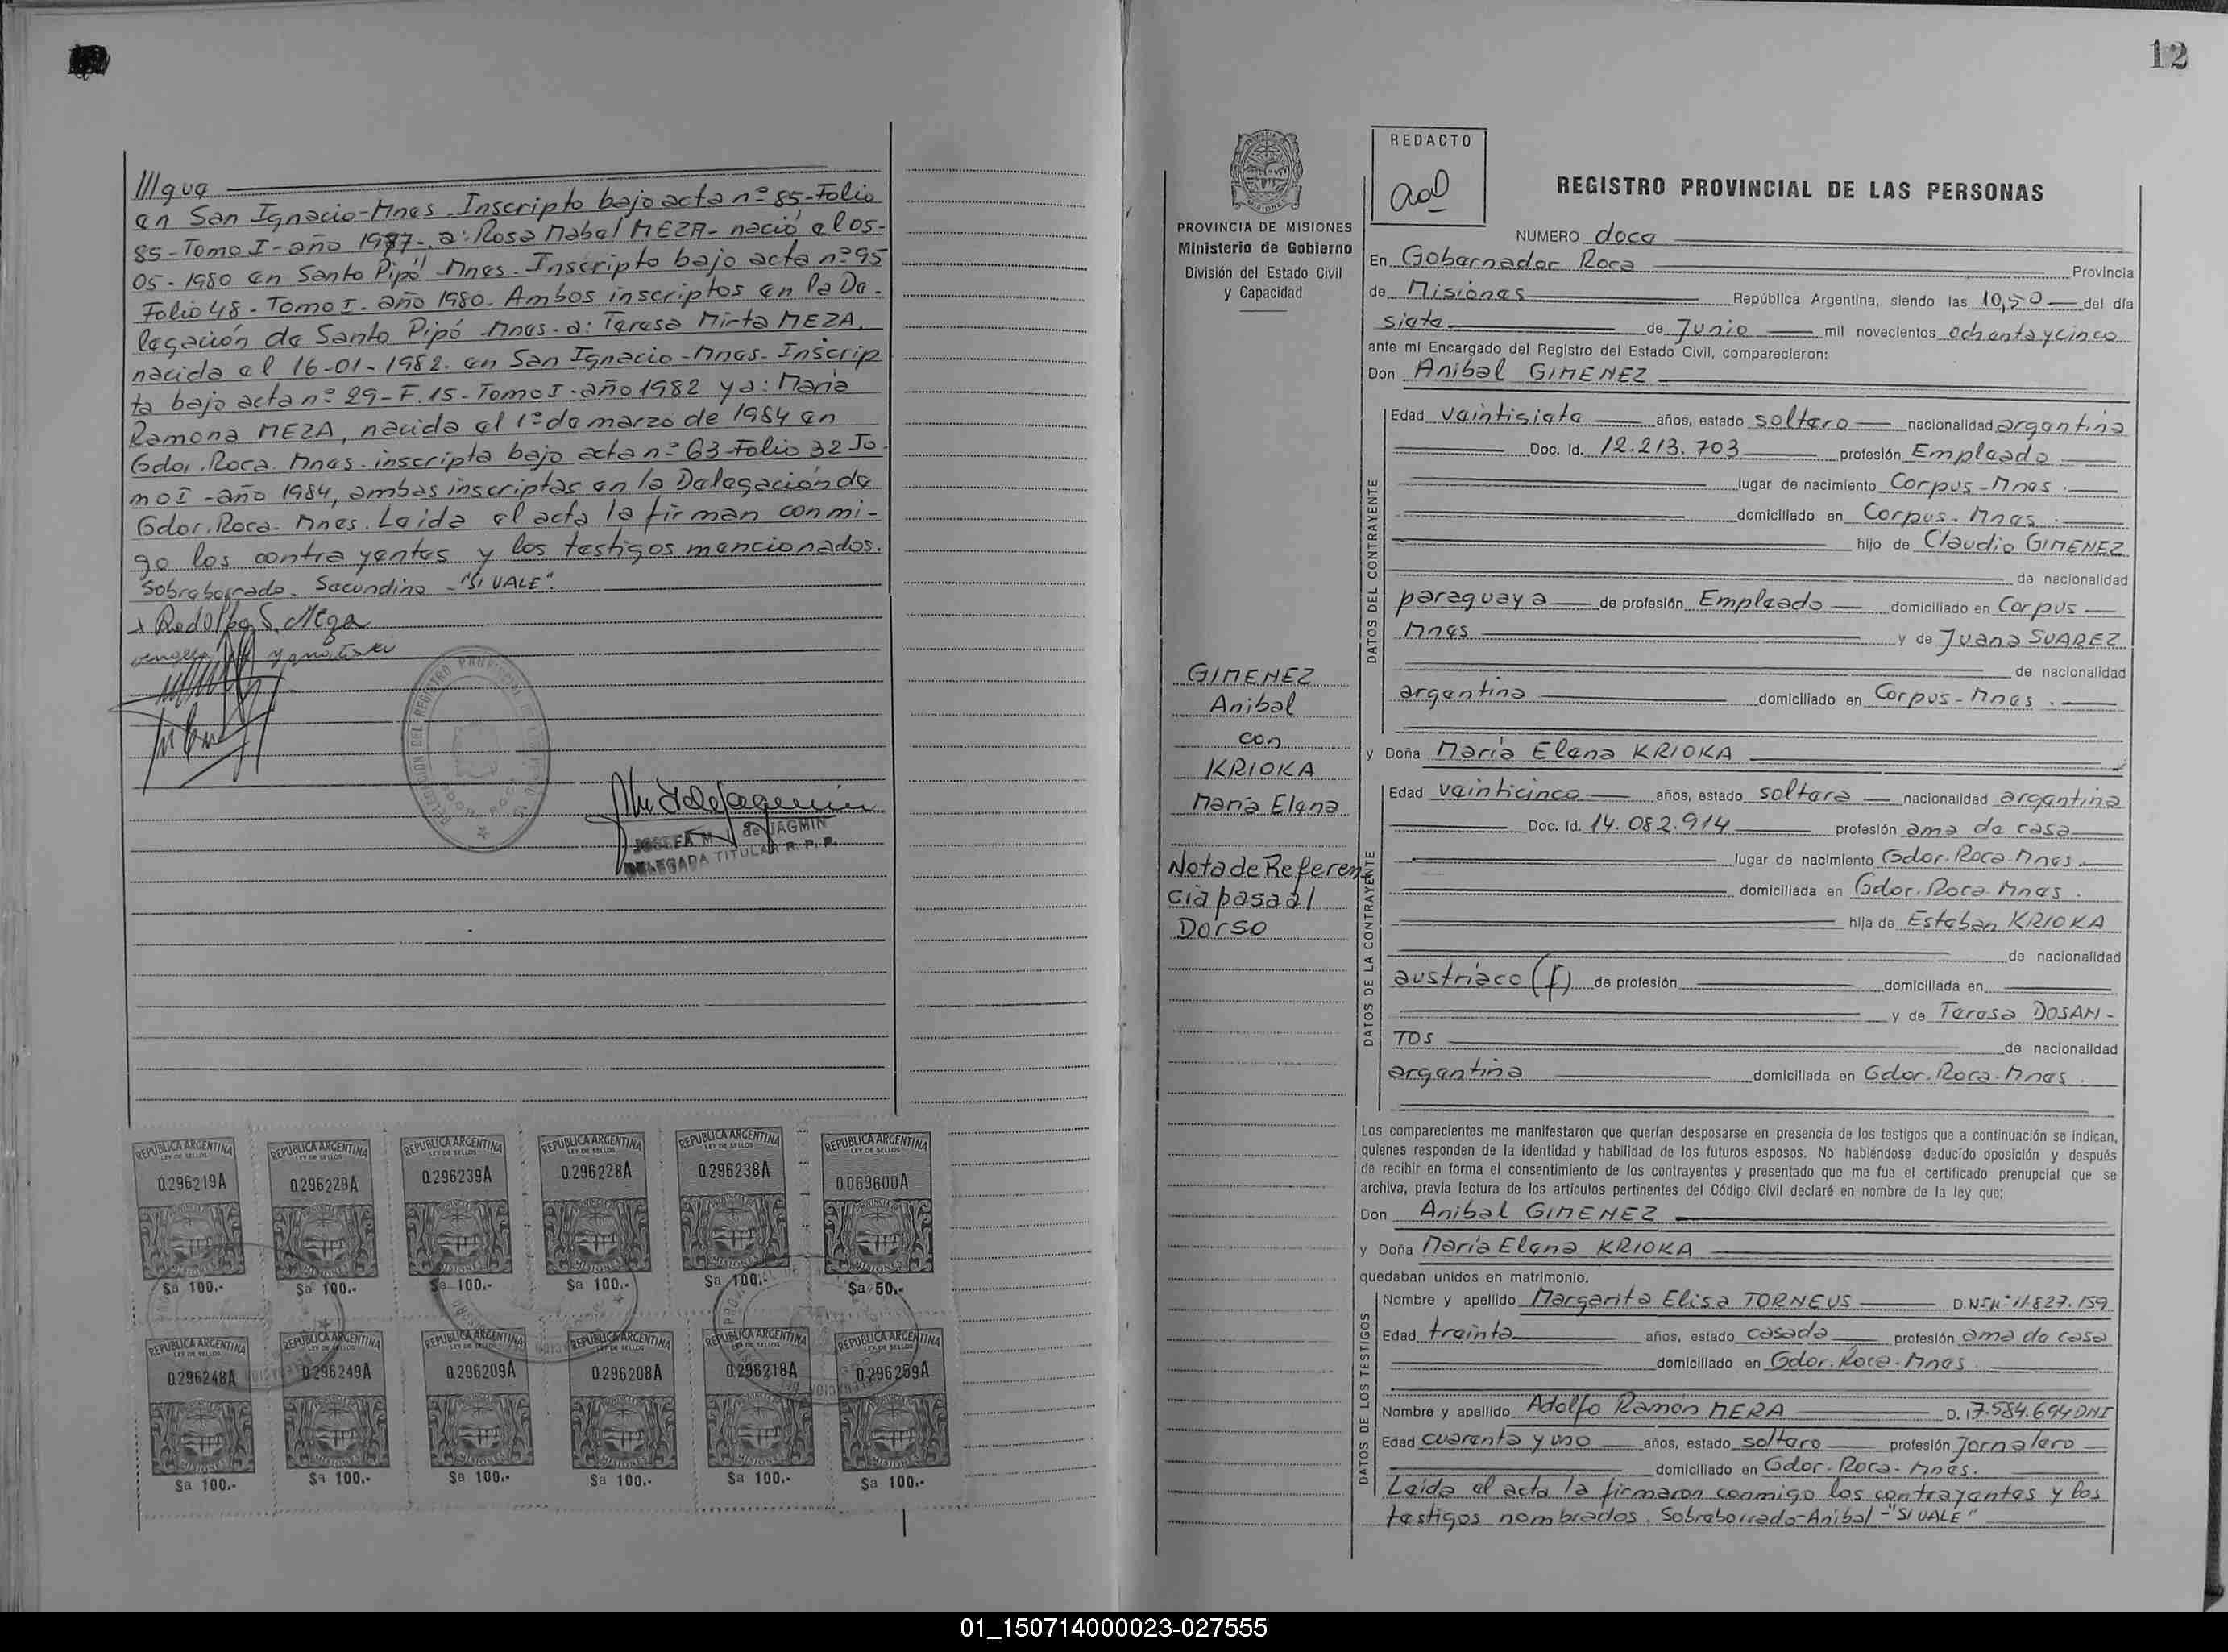 12
///que
en San Ignacio-Mnes. Inscripto bajo acta nº 85-Folio
85-Tomo I-año 1977-. a: Rosa Mabel MEZA- nació el 05-
05-1980 en Santo Pipó Mnes. Inscripto bajo acta nº 95
Folio 48-Tomo I. año 1980. Ambos inscriptos en la De-
legación de Santo Pipó Mnes. a: Teresa Mirta MEZA,
nacida el 16-01-1982. en San Ignacio-Mnes-Inscrip
ta bajo acta nº 29-F.15-Tomo I-año 1982 y a: Maria
Ramona MEZA, nacida el 1º de marzo de 1984 en
Gdor. Roca. Mnes. inscripta bajo acta nº 63-Folio 32 To
mo I-año 1984, ambas inscriptas en la Delegación de
Gdor. Roca. Mnes. Leida el acta la firman conmi-
go los contrayentes y los testigos mencionados.
Sobreborrado. Secundino -"SI VALE".
Rodolfo S. Meza
JOSEFA M. de JAGMIN
DELEGADA TITULAR R. P. P.
REPUBLICA ARGENTINA REPUBLICA ARGENTINA REPUBLICA ARGENTINA REPUBLICA ARGENTINA REPUBLICA ARGENTINA REPUBLICA ARGENTINA
LEY DE SELLOS LEY DE SELLOS LEY DE SELLOS LEY DE SELLOS LEY DE SELLOS LEY DE SELLOS
0.296219A 0.296229A 0.296239A 0.296228A 0.296238A 0.069600A
MISIONES MISIONES MISIONES MISIONES MISIONES MISIONES
$a 100.- $a 100.- $a 100.- $a 100.- $a 100.- $a 50.-
REPUBLICA ARGENTINA REPUBLICA ARGENTINA REPUBLICA ARGENTINA REPUBLICA ARGENTINA REPUBLICA ARGENTINA REPUBLICA ARGENTINA
LEY DE SELLOS LEY DE SELLOS LEY DE SELLOS LEY DE SELLOS LEY DE SELLOS LEY DE SELLOS
0.296248A 0.296249A 0.296209A 0.296208A 0.296218A 0.296259A
MISIONES MISIONES MISIONES MISIONES MISIONES MISIONES
$a 100.- $a 100.- $a 100.- $a 100.- $a 100.- $a 100.-
PROVINCIA DE MISIONES
Ministerio de Gobierno
División del Estado Civil
y Capacidad
GIMENEZ
Anibal
con
KRIOKA
María Elena
Nota de Referen
cia pasa al
Dorso
REDACTO
REGISTRO PROVINCIAL DE LAS PERSONAS
NUMERO doce
En Gobernador Roca Provincia
de Misiones República Argentina, siendo las 10,50 del día
siete de Junio mil novecientos ochenta y cinco
ante mí Encargado del Registro del Estado Civil, comparecieron:
Don Anibal GIMENEZ
DATOS DEL CONTRAYENTE
Edad veintisiete años, estado soltero nacionalidad argentina
Doc. Id. 12.213.703 profesión Empleado
lugar de nacimiento Corpus-Mnes.
domiciliado en Corpus. Mnes.
hijo de Claudio GIMENEZ
de nacionalidad
paraguaya de profesión Empleado domiciliado en Corpus
Mnes y de Juana SUAREZ
de nacionalidad
argentina domiciliado en Corpus-Mnes.
y Doña María Elena KRIOKA
DATOS DE LA CONTRAYENTE
Edad veinticinco años, estado soltera nacionalidad argentina
Doc. Id. 14.082.914 profesión ama de casa
lugar de nacimiento Gdor. Roca-Mnes.
domiciliada en Gdor. Roca-Mnes.
hija de Esteban KRIOKA
de nacionalidad
austriaco (f) de profesión domiciliada en
y de Teresa DOSAN-
TOS de nacionalidad
argentina domiciliada en Gdor. Roca. Mnes.
Los comparecientes me manifestaron que querían desposarse en presencia de los testigos que a continuación se indican,
quienes responden de la identidad y habilidad de los futuros esposos. No habiéndose deducido oposición y después
de recibir en forma el consentimiento de los contrayentes y presentado que me fue el certificado prenupcial que se
archiva, previa lectura de los artículos pertinentes del Código Civil declaré en nombre de la ley que;
Don Anibal GIMENEZ
y Doña María Elena KRIOKA
quedaban unidos en matrimonio.
DATOS DE LOS TESTIGOS
Nombre y apellido Margarita Elisa TORNEUS D.NI Nº 11.827.159
Edad treinta años, estado casada profesión ama de casa
domiciliado en Gdor. Roca-Mnes
Nombre y apellido Adolfo Ramón MERA D. 17.584.694 DNI
Edad cuarenta y uno años, estado soltero profesión Jornalero
domiciliado en Gdor. Roca. Mnes.
Leida el acta la firmaron conmigo los contrayentes y los
testigos nombrados. Sobreborrado-Anibal -"SI VALE"
01_150714000023-027555